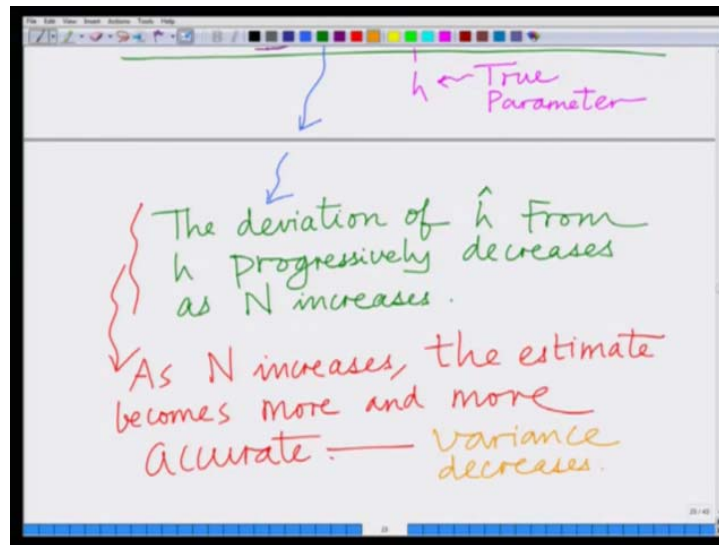 File Edit View Insert Actions Tools Help
h ← True
Parameter
The deviation of ĥ From
h progressively decreases
as N increases.
As N increases, the estimate
becomes more and more
accurate. — variance
decreases.